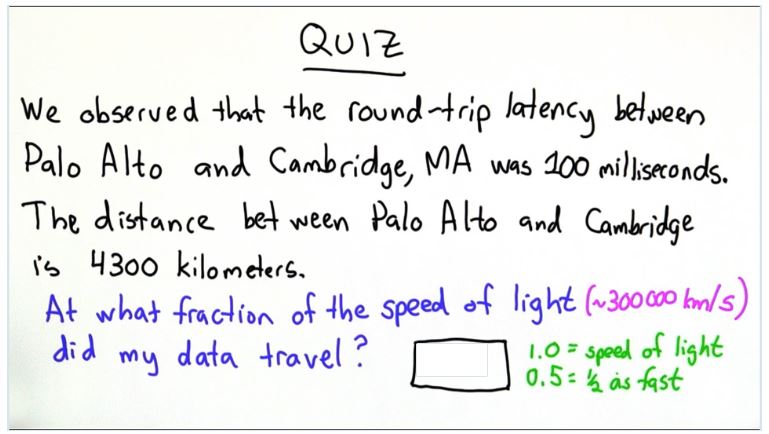 QUIZ
We observed that the round-trip latency between
Palo Alto and Cambridge, MA was 100 milliseconds.
The distance between Palo Alto and Cambridge
is 4300 kilometers.
At what fraction of the speed of light (~300000 km/s)
did my data travel?
1.0 = speed of light
0.5 = ½ as fast